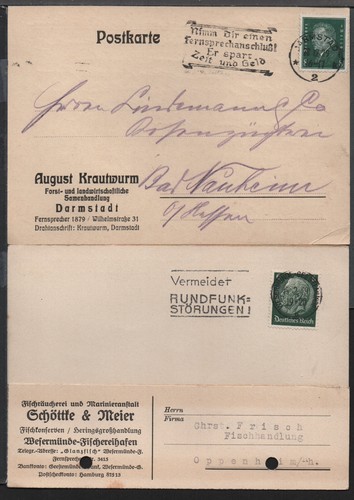 Postkarte
Nimm Dir einen
Fernsprechanschluß!
Er spart
Zeit und Geld
2
Herren Lindemann & Co
Rosenzüchter
August Krautwurm
Forst- und landwirtschaftliche
Samenhandlung
Darmstadt
Fernsprecher 1879 / Wilhelmstraße 31
Drahtanschrift: Krautwurm, Darmstadt
Bad Nauheim
Vermeidet
RUNDFUNK-
STÖRUNGEN!
Deutsches Reich
Fischräucherei und Marinieranstalt
Schöttke & Meier
Fischkonserven / Heringsgroßhandlung
Wesermünde-Fischereihafen
Telegr.-Adresse: „Glanzfisch" Wesermünde-F.
Fernsprecher Nr. 3413
Bankkonto: Geestemünder Bank, Wesermünde-G.
Postscheckkonto: Hamburg 67813
Herrn
Firma
Chrst. Frisch
Fischhandlung
Oppenheim/h.